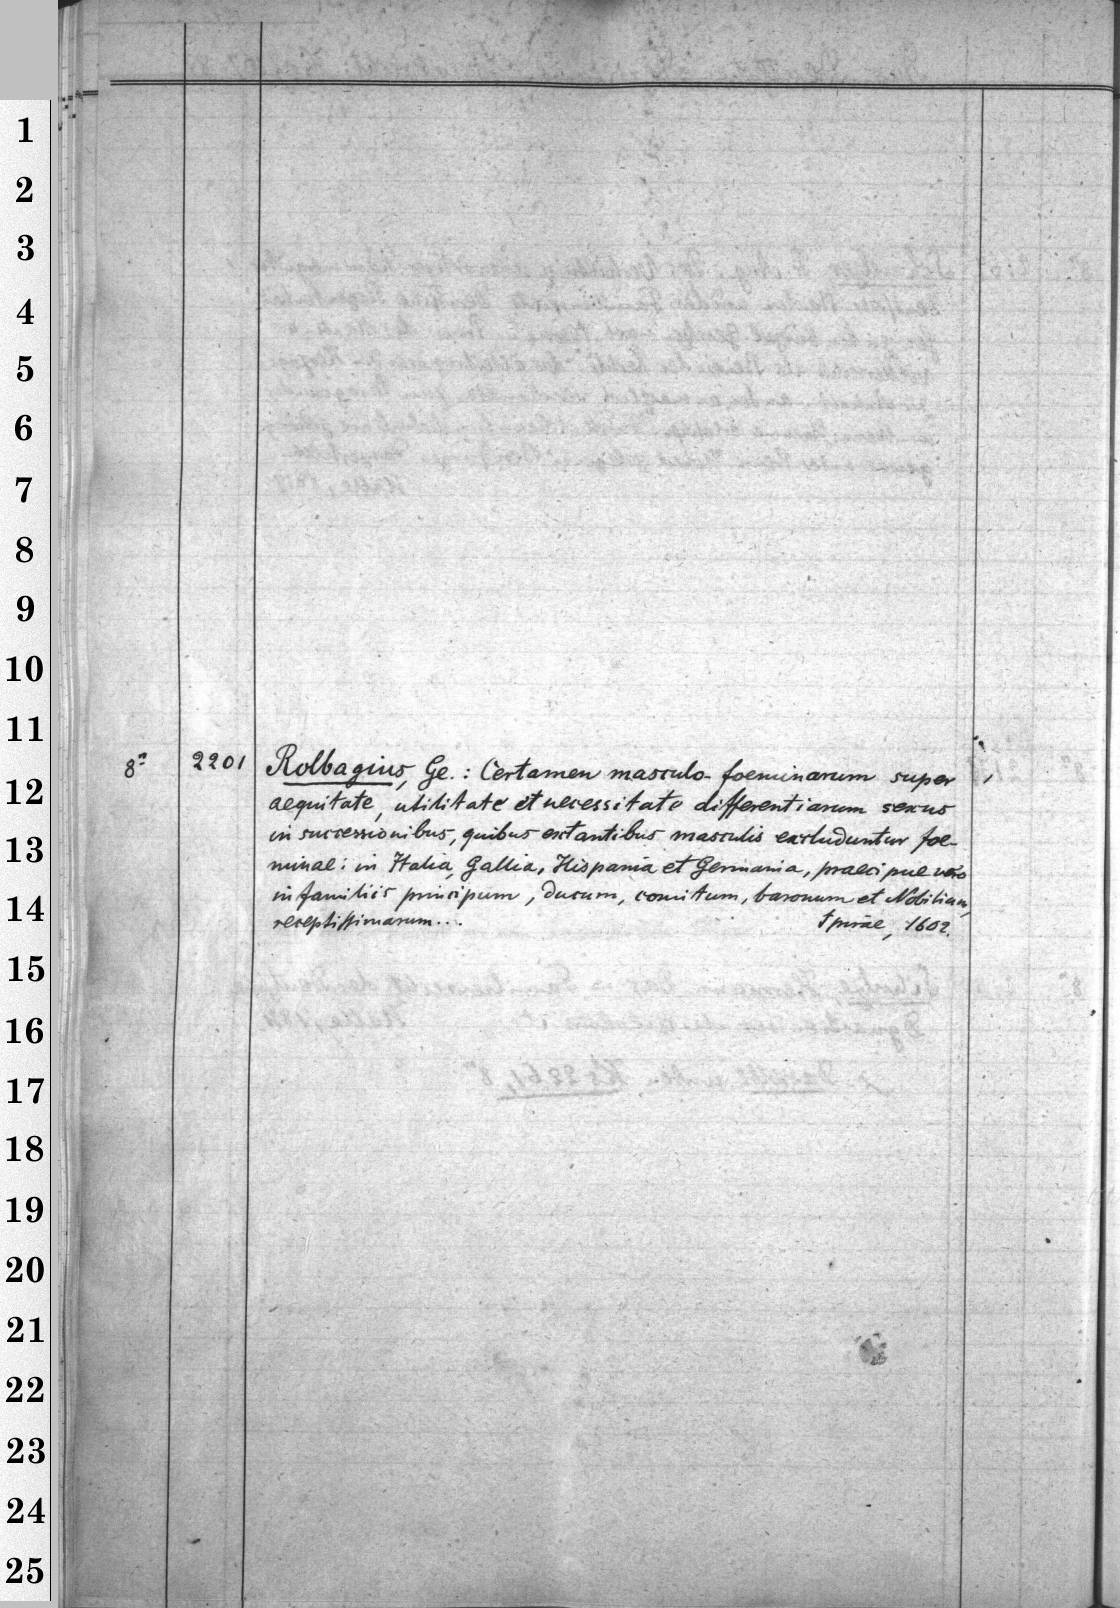 1
2
3
4
5
6
7
8
9
10
11
8° 2201 Rolbagius, Ge.: Certamen masculo-foeminarum super
12
aequitate, utilitate et necessitate differentiarum sexus
in successionibus, quibus extantibus masculis excluduntur foe-
13
minae: in Italia, Gallia, Hispania et Germania, praecipue vero
in familiis principum, ducum, comitum, baronum et Nobilium,
14
receptissimarum... Spirae, 1602.
15
16
17
18
19
20
21
22
23
24
25